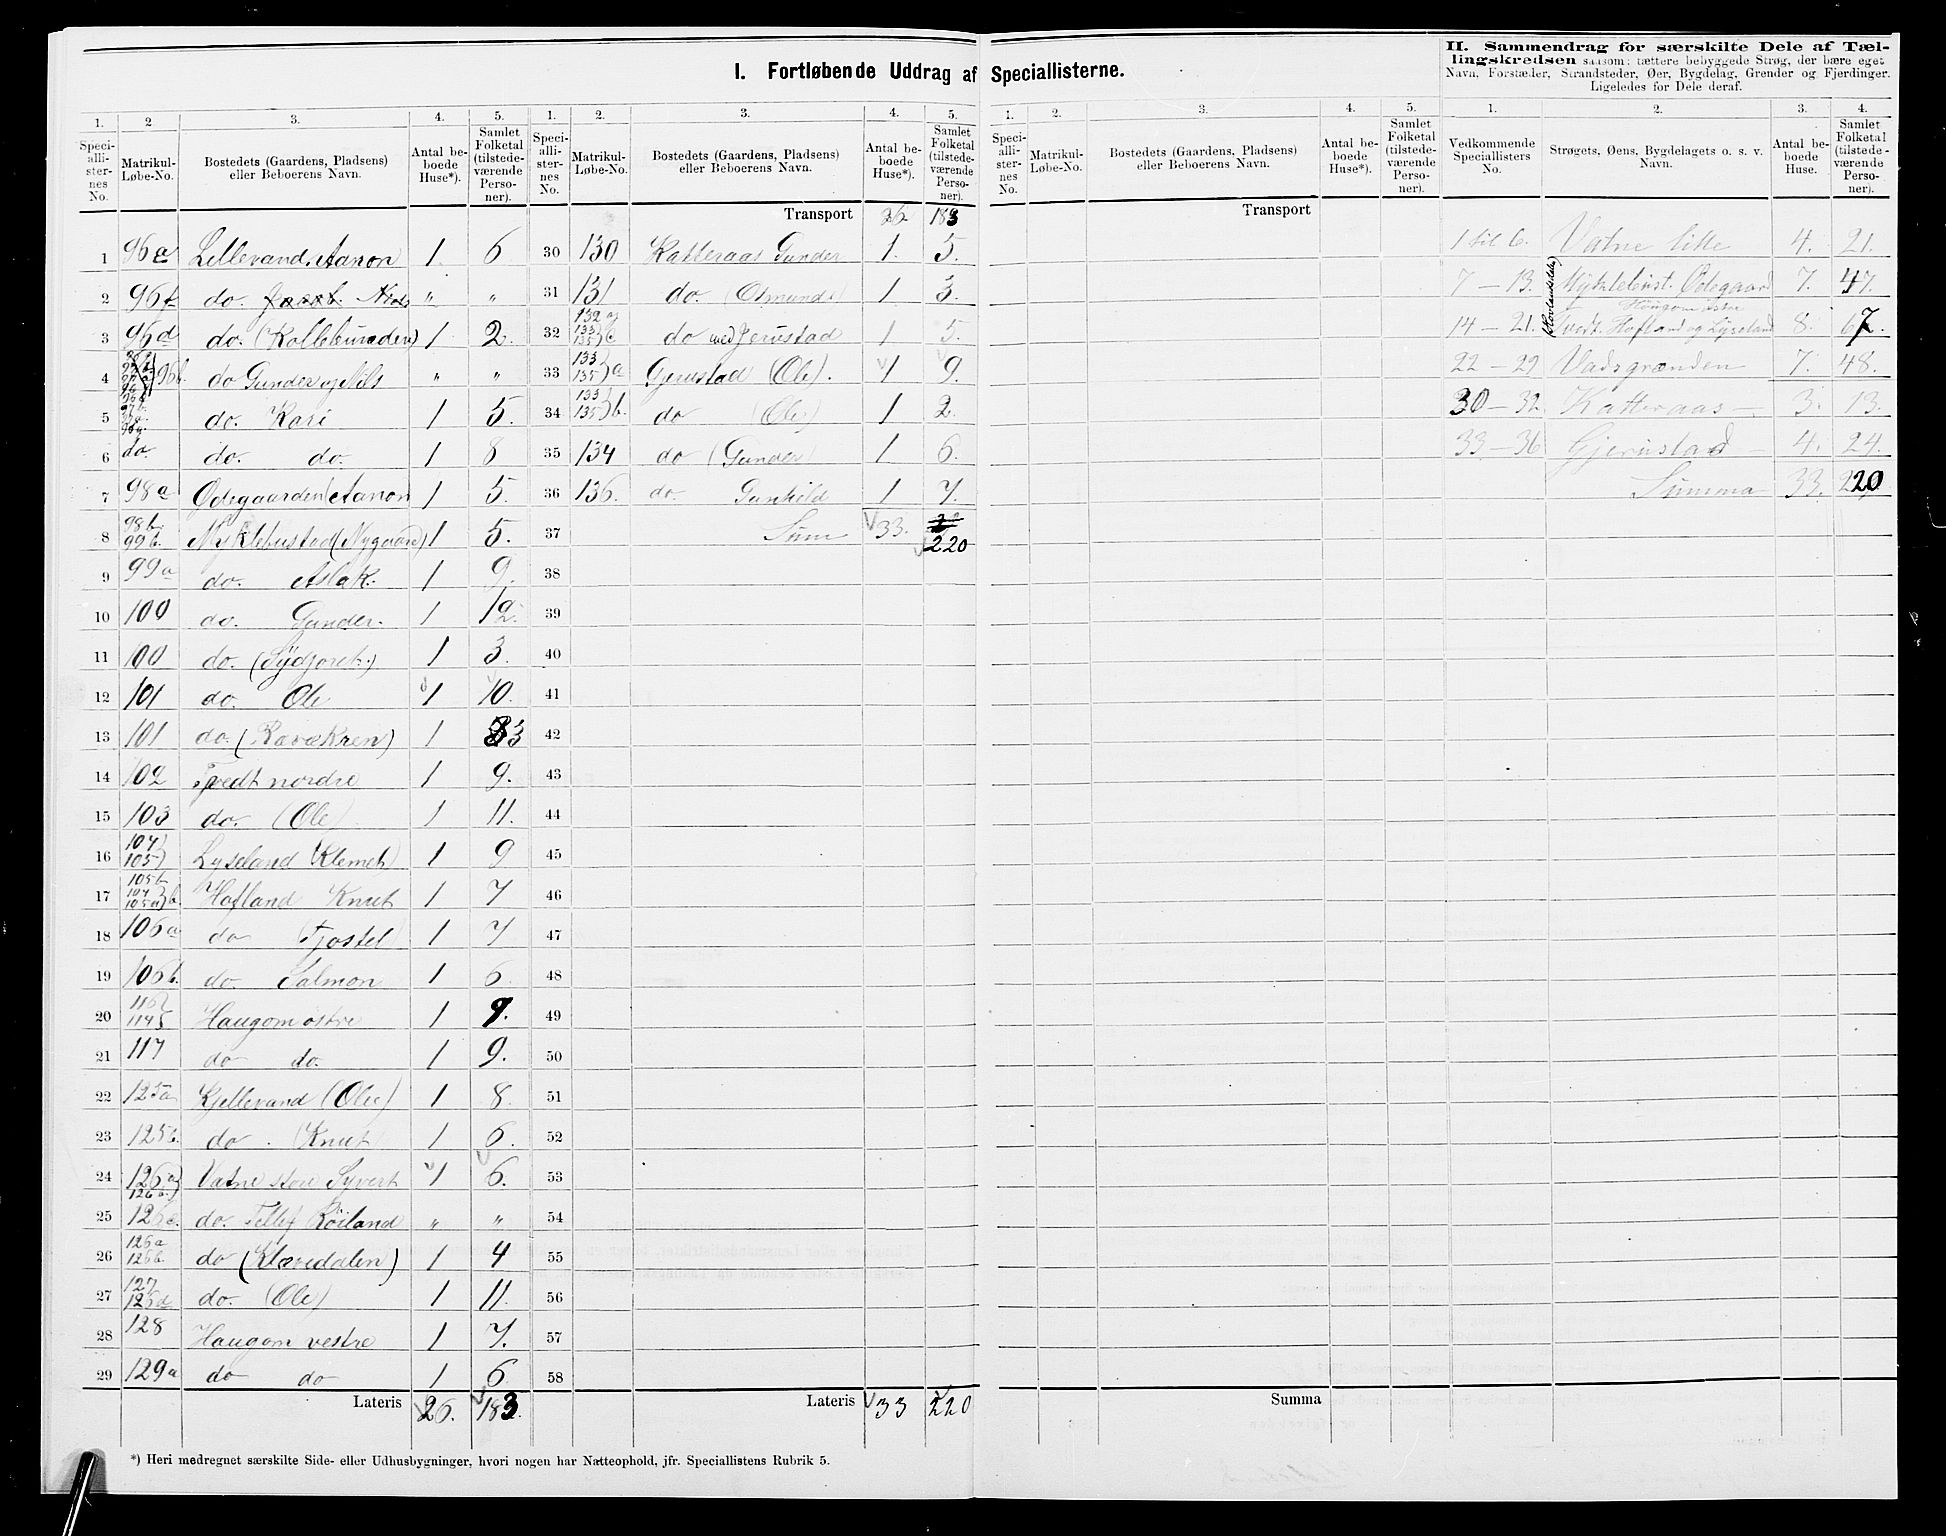 I. Fortløbende Uddrag af Speciallisterne.
II. Sammendrag for særskilte Dele af Tæl-
lingskredsen saasom: tættere bebyggede Strøg, der bære eget
Navn, Forstæder, Strandsteder, Øer, Bygdelag, Grender og Fjerdinger.
Ligeledes for Dele deraf.
1. 2 3. 4. 5.
Speci-alli-ster-nes No. Matrikul-Løbe-No. Bostedets (Gaardens, Pladsens) eller Beboerens Navn. Antal be-boede Huse*). Samlet Folketal (tilstede-værende Perso-ner).
1 96a Lillevand. Aanon 1. 6
2 96f do. Niels " "
3 96d do. (Kollebunden) 1 2.
4 96b. do Gunder og Nils " "
5 do. Kari 1 5.
6 do. do. do. 1 8
7 98a Ødegaarden (Aanon 1 5.
8 98b. 99b. Myklebustad (Nygaard) 1 5.
9 99a do. Aslak. 1 9.
10 100 do. Gunder. 1 12.
11 100 do. 1 3.
12 101 do. Ole 1 10.
13 101 do. (Ravekren) 1 3
14 102 Tvedt nordre 1 9.
15 103 do. (Ole) 1 11.
16 104) 105) Lyseland Klemet) 1 9
17 105b 104) 105a) b. Hofland Knut 1 7
18 106a do Tjostel 1 7
19 106b. do Salmon 1 6.
20 Haugom østre 1 9.
21 117 do do. 1 9.
22 125a Kjellevand (Ole) 1 8.
23 125b. do. (Knut) 1 6.
24 126a) Vatne store Syvert 1 6.
25 do. Tellef Röiland " "
26 do (Klovedalen) 1 4
27 127 do. (Ole) 1 11.
28 128 Haugom vestre 1 7.
29 129a do do 1 6.
Lateris 26. 183.
1. 2. 3. 4. 5.
Speci-alli-ster-nes No. Matrikul-Løbe-No. Bostedets (Gaardens, Pladsens) eller Beboerens Navn. Antal be-boede Huse*). Samlet Folketal (tilstede-værende Perso-ner).
Transport 26 183
30 130 Katteraas Gunder 1. 5.
31 131 do. (Osmund) 1 3.
32 do med Jerustad 1 5.
33 133) 135) a Gjerustad (Ole). 1 9.
34 133) 135) b. do (Ole) 1 2.
35 134 do (Gunder) 1 6.
36 136. do. Gunhild 1 7.
37 Sum 33. 220
38
39
40
41
42
43
44
45
46
47
48
49
50
51
52
53
54
55
56
57
58
Lateris 33 220
1. 2. 3. 4. 5.
Speci-alli-ster-nes No. Matrikul-Løbe-No. Bostedets (Gaardens, Pladsens) eller Beboerens Navn. Antal be-boede Huse*). Samlet Folketal (tilstede-værende Perso-ner).
Transport
Summa
1. 2. 3. 4.
Vedkommende Speciallisters No. Strøgets, Øens, Bygdelagets o. s. v. Navn. Antal be-boede Huse. Samlet Folketal (tilstede-værende Perso-ner).
1 til 6. Vatne lille 4. 21.
7 – 13. Myklebust. Ödegaard 7. 47.
Haugom østre
14 – 21. Tvedt. Hofland og Lyseland 8. 67.
22 – 29 Vadsgrænden 7. 48.
30 – 32. Katteraas – 3. 13.
33 – 36 Gjerustad – 4. 24.
Summa 33. 220
*) Heri medregnet særskilte Side- eller Udhusbygninger, hvori nogen har Natteophold, jfr. Speciallistens Rubrik 5.